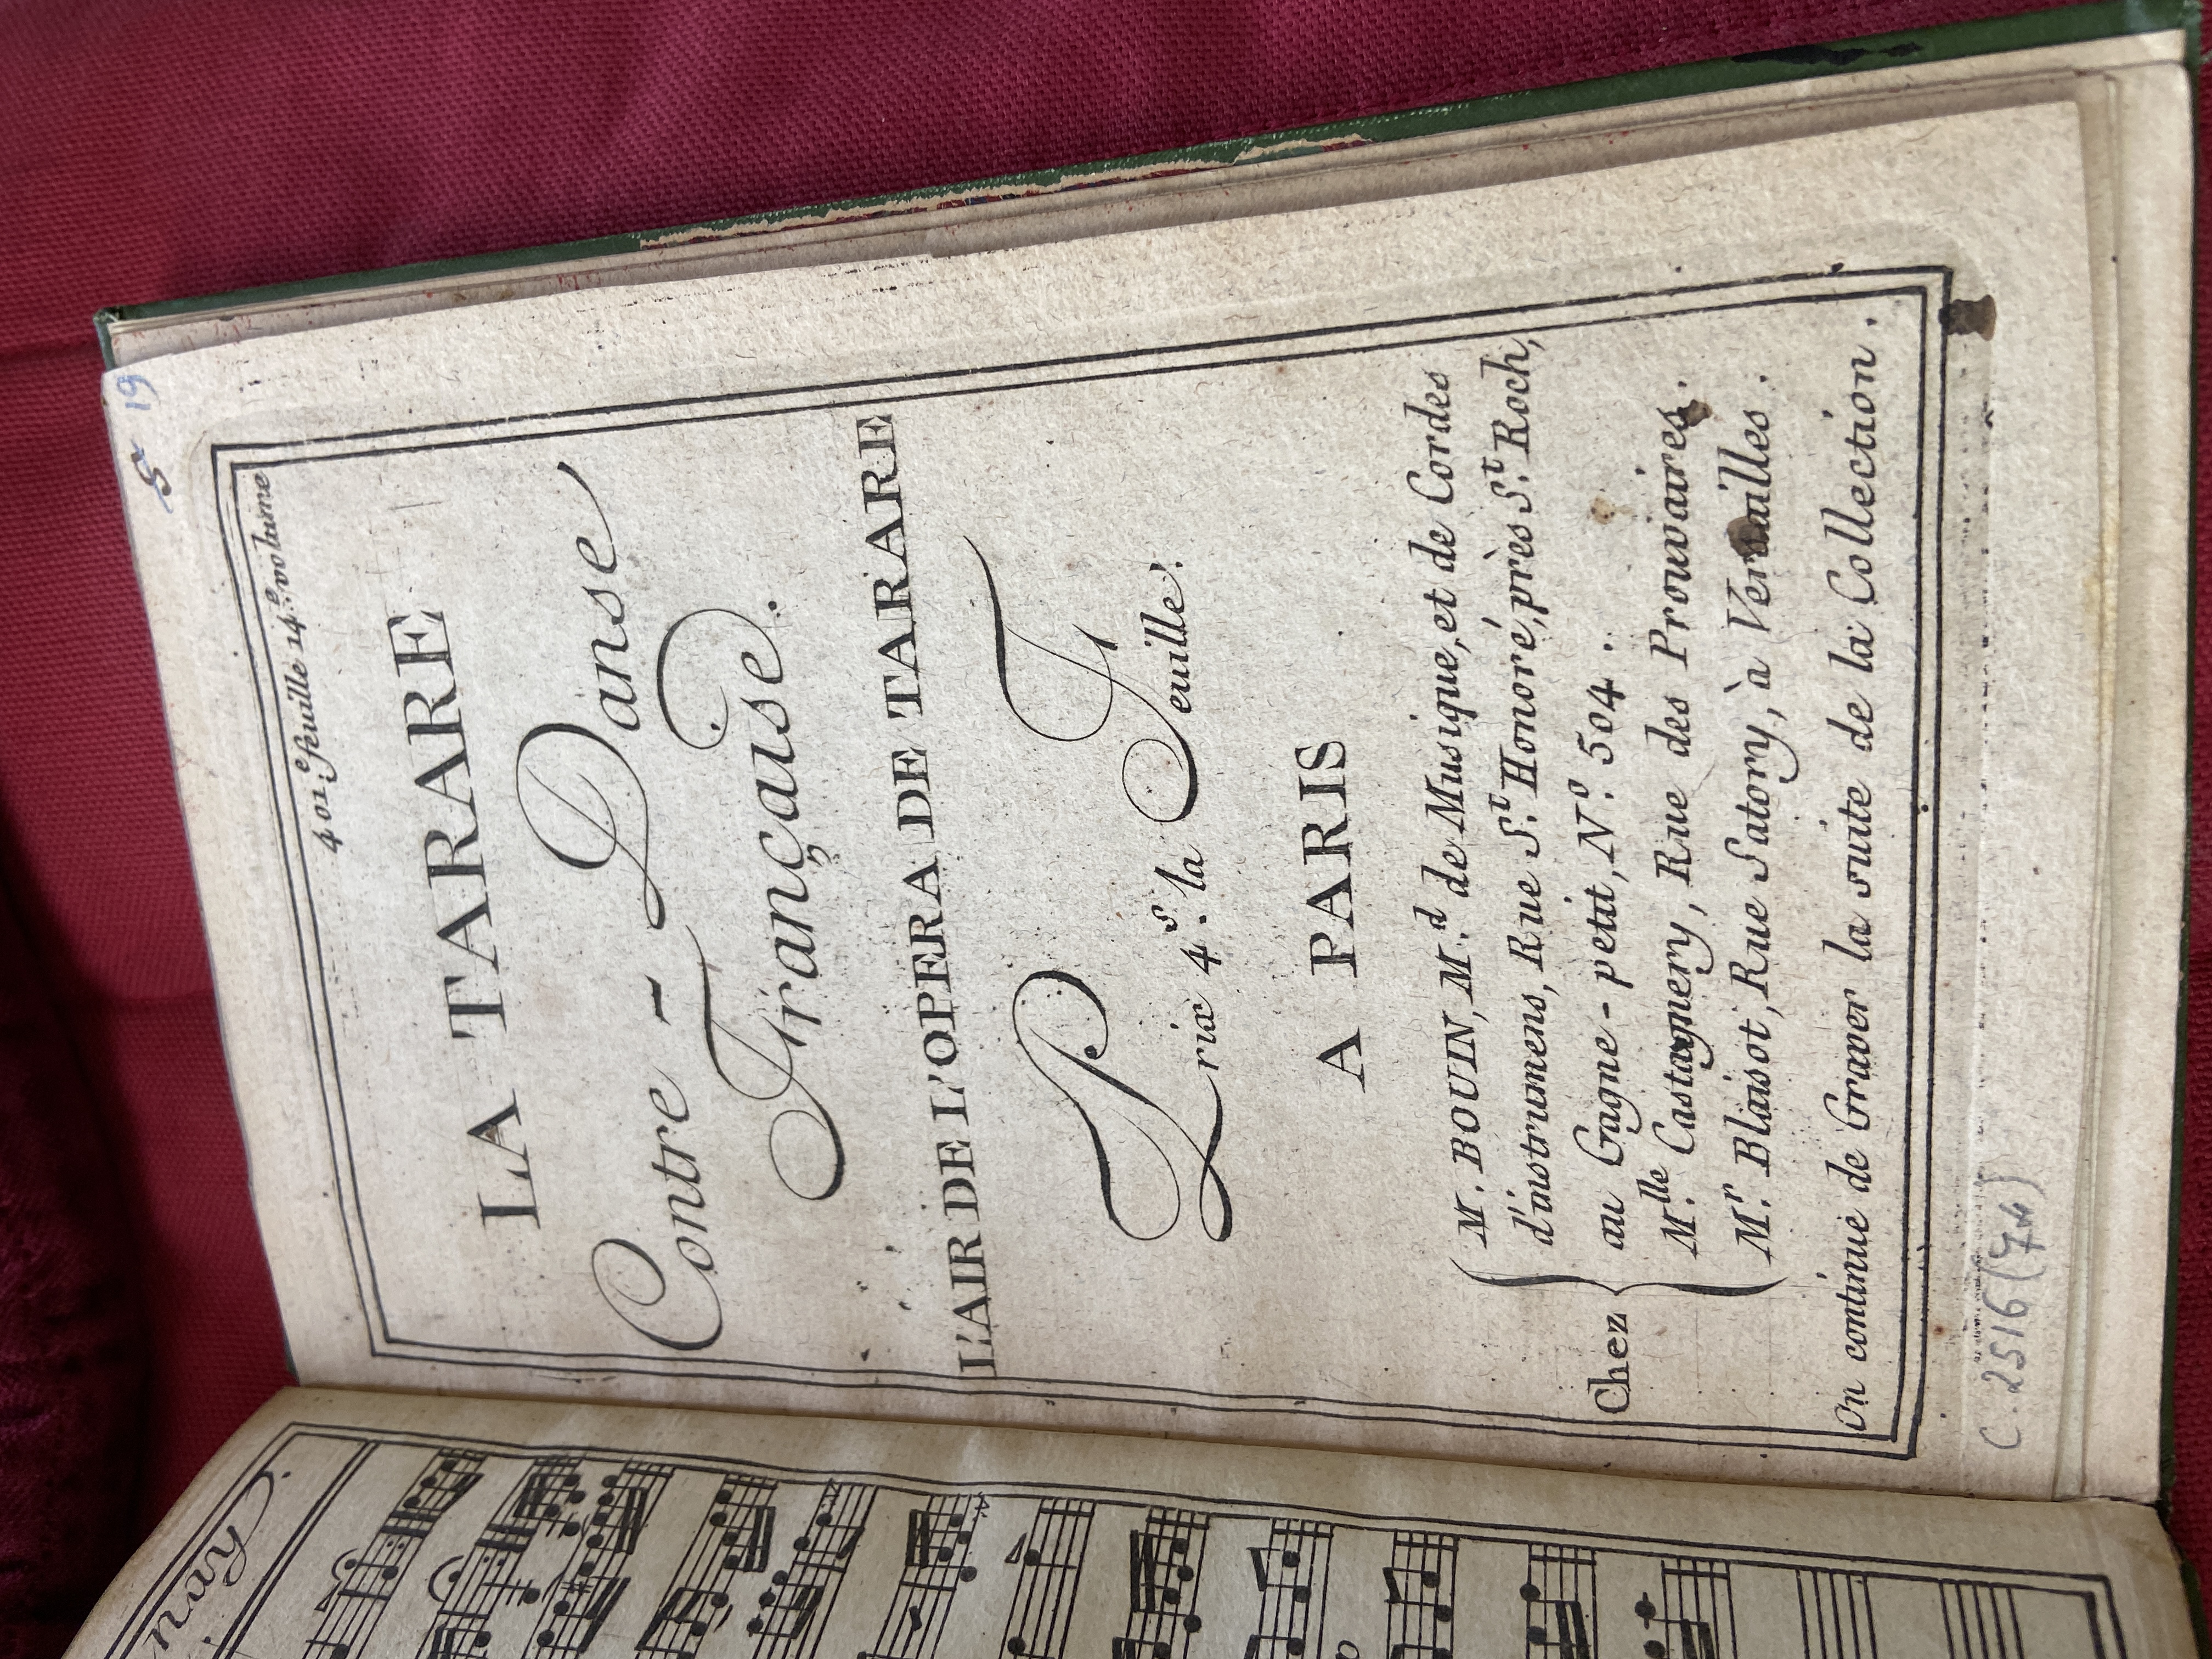 5 19
401.e feuille 14.e volume
LA TARARE
Contre-Danse
Française.
L'AIR DE L'OPERA DE TARARE
Prix 4.s la Feuille.
A PARIS
Chez
M. BOUIN, M.d de Musique, et de Cordes
d'instrumens, Rue S.t Honoré, près S.t Roch,
au Gagne-petit, N.o 504.
M.lle Castagnery, Rue des Prouvaires.
M.r Blaisot, Rue Satory, à Versailles.
On continue de Graver la suite de la Collection.
C. 2516 (74)